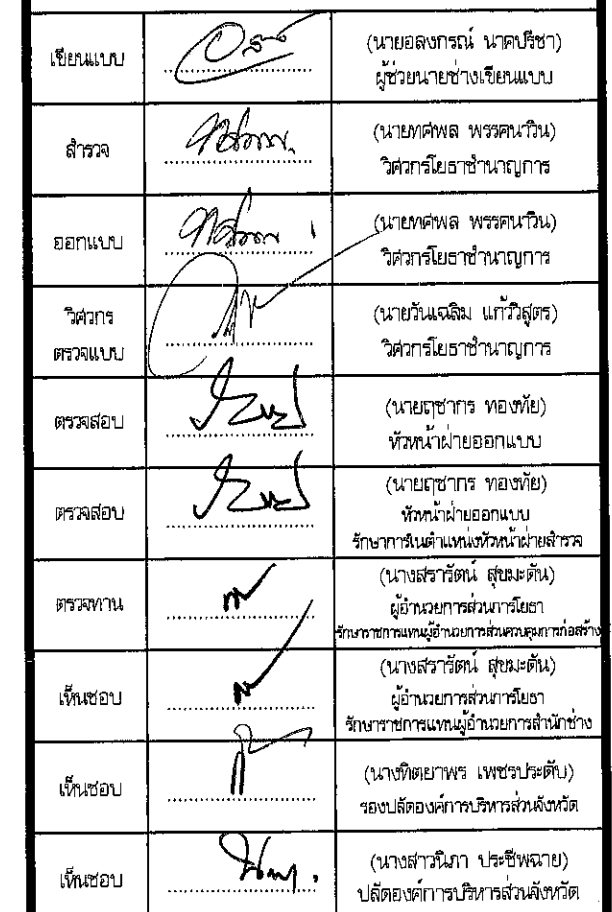 เขียนแบบ
(นายอลงกรณ์ นาคปรีชา)
ผู้ช่วยนายช่างเขียนแบบ
สำรวจ
(นายทศพล พรรคนาวิน)
วิศวกรโยธาชำนาญการ
ออกแบบ
(นายทศพล พรรคนาวิน)
วิศวกรโยธาชำนาญการ
วิศวกร
ตรวจแบบ
(นายวันเฉลิม แก้ววิสูตร)
วิศวกรโยธาชำนาญการ
ตรวจสอบ
(นายฤชากร ทองทัย)
หัวหน้าฝ่ายออกแบบ
ตรวจสอบ
(นายฤชากร ทองทัย)
หัวหน้าฝ่ายออกแบบ
รักษาการในตำแหน่งหัวหน้าฝ่ายสำรวจ
ตรวจทาน
(นางสรารัตน์ สุขมะดัน)
ผู้อำนวยการส่วนการโยธา
รักษาราชการแทนผู้อำนวยการส่วนควบคุมการก่อสร้าง
เห็นชอบ
(นางสรารัตน์ สุขมะดัน)
ผู้อำนวยการส่วนการโยธา
รักษาราชการแทนผู้อำนวยการสำนักช่าง
เห็นชอบ
(นางทิตยาพร เพชรประดับ)
รองปลัดองค์การบริหารส่วนจังหวัด
เห็นชอบ
(นางสาวนิภา ประชีพฉาย)
ปลัดองค์การบริหารส่วนจังหวัด